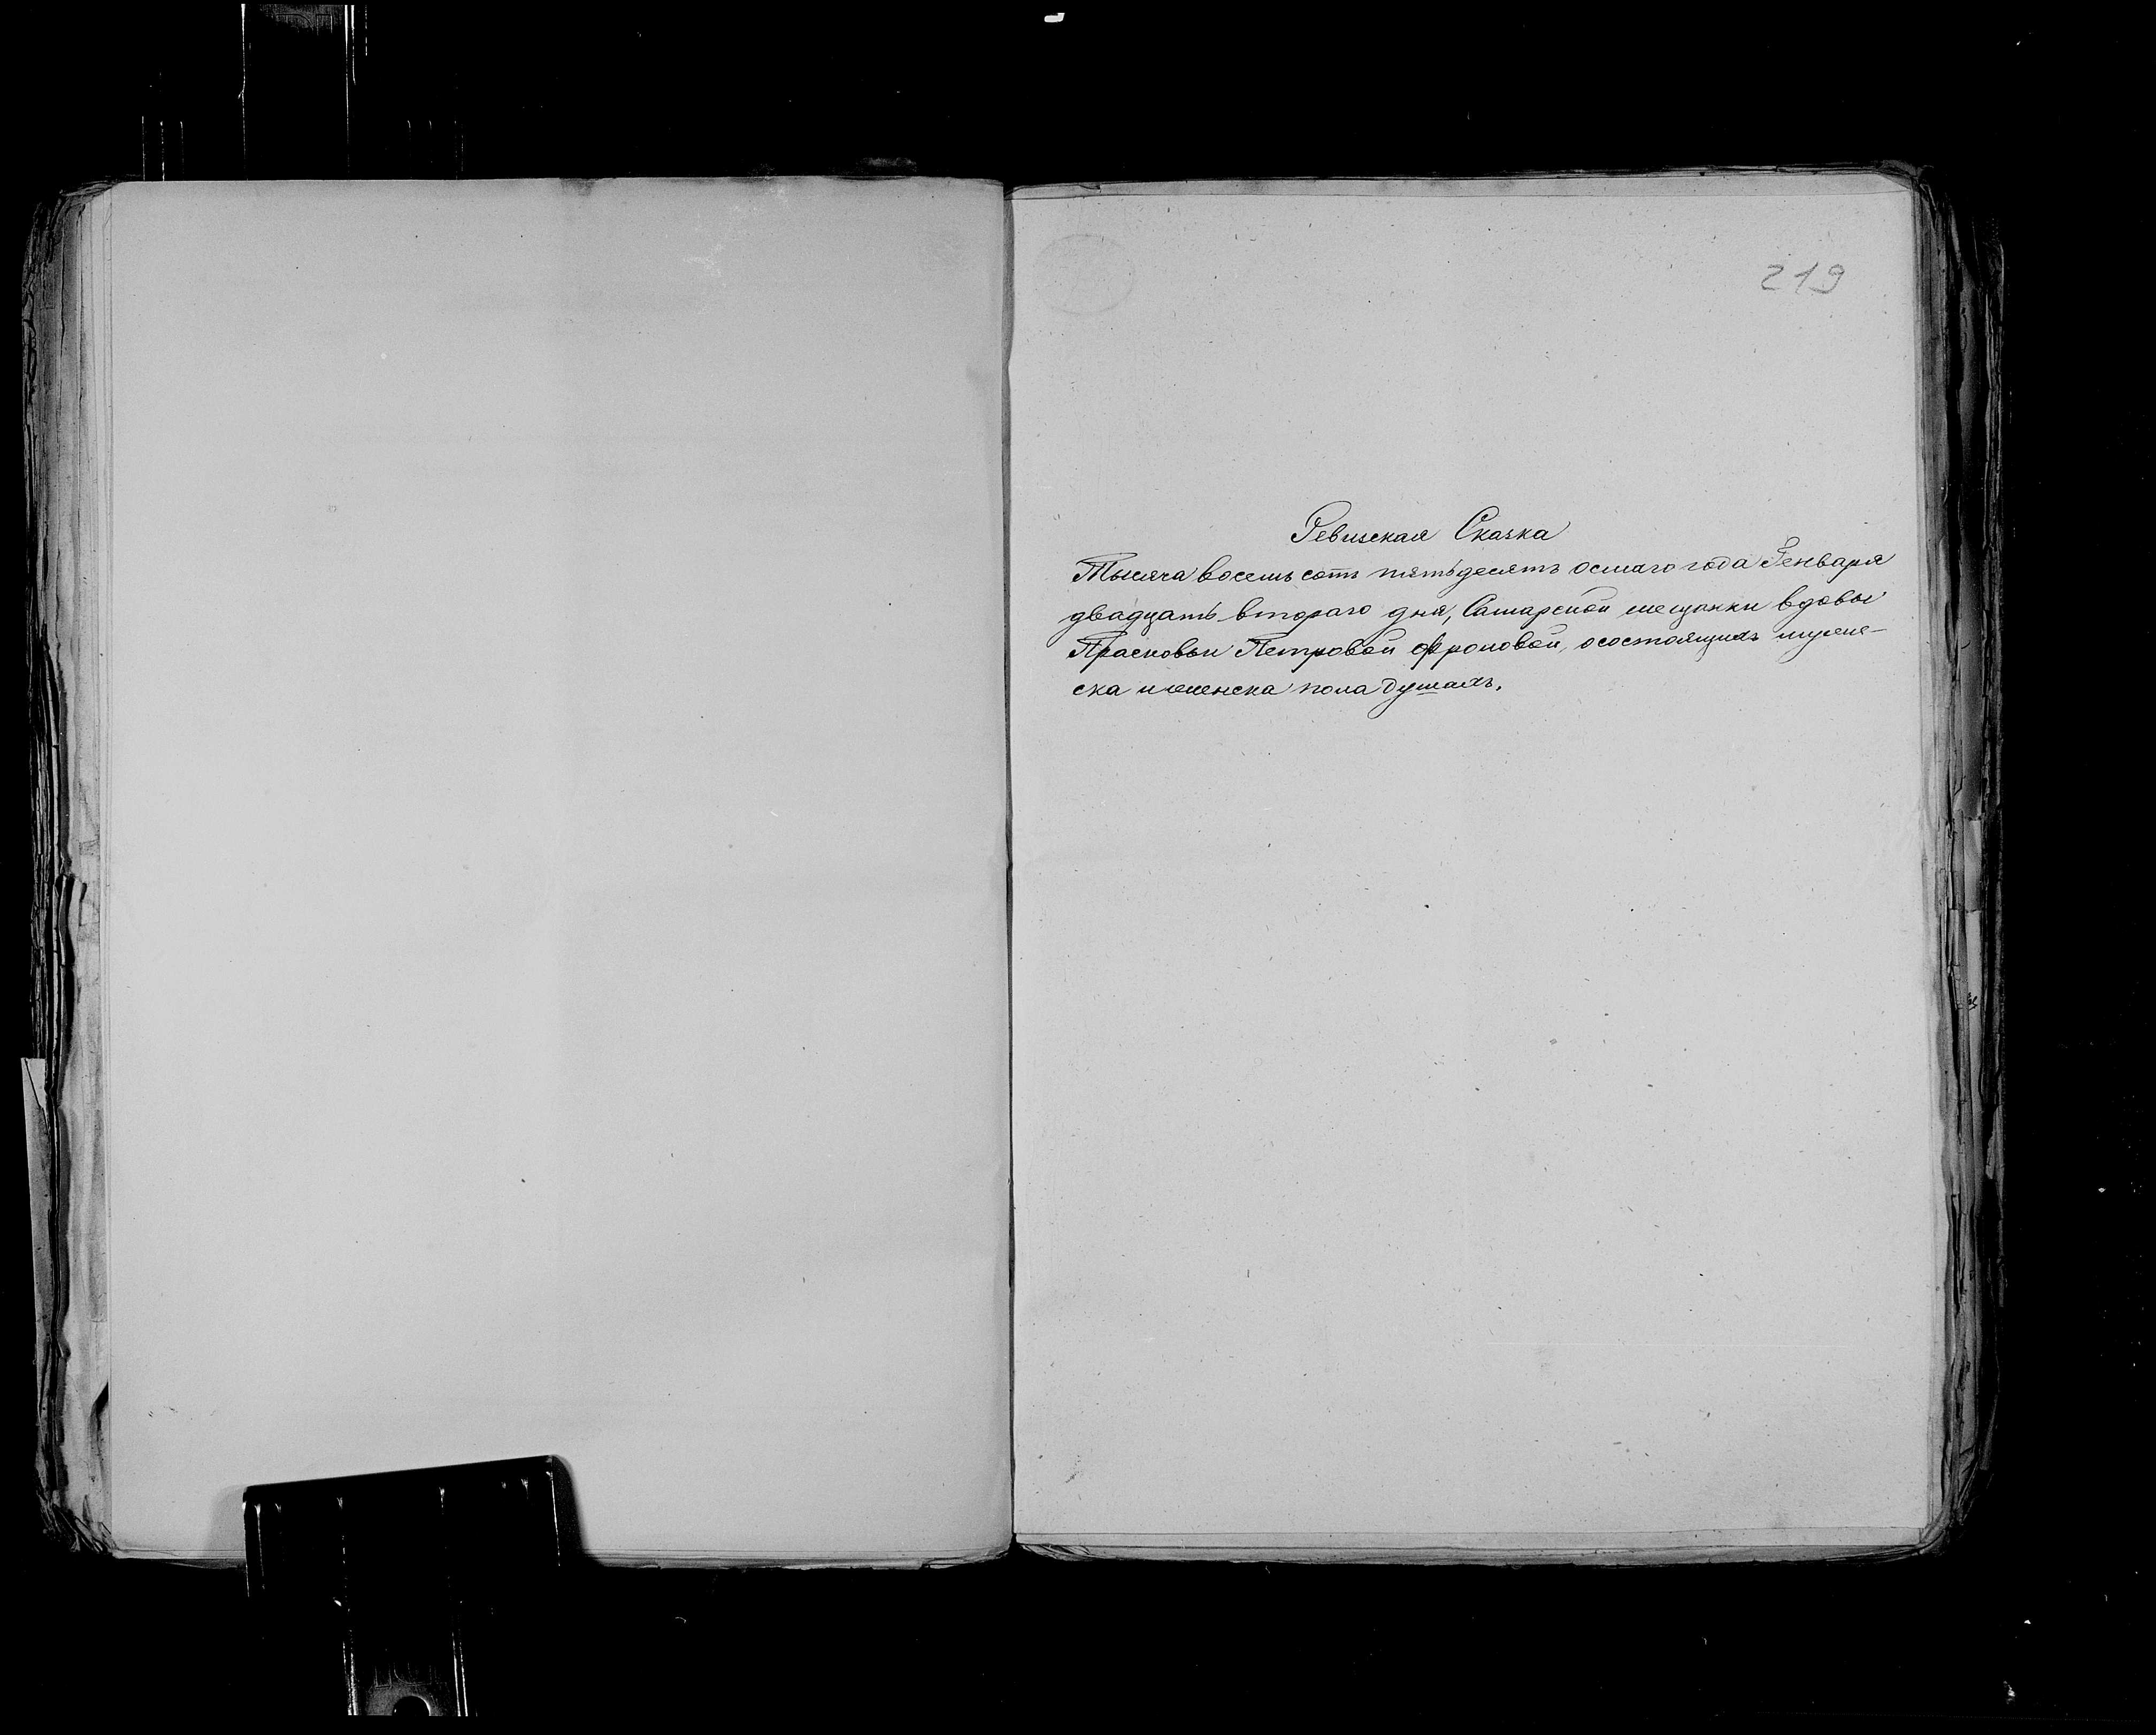 219
Ревизская Сказка
Тысяча восемь сотъ пятьдесятъ осмаго года Генваря
двадцать втораго дня, Самарской мещанки вдовы
Прасковьи Петровой Фроловой, о состоящихъ мужс-
ска и женска пола душахъ.